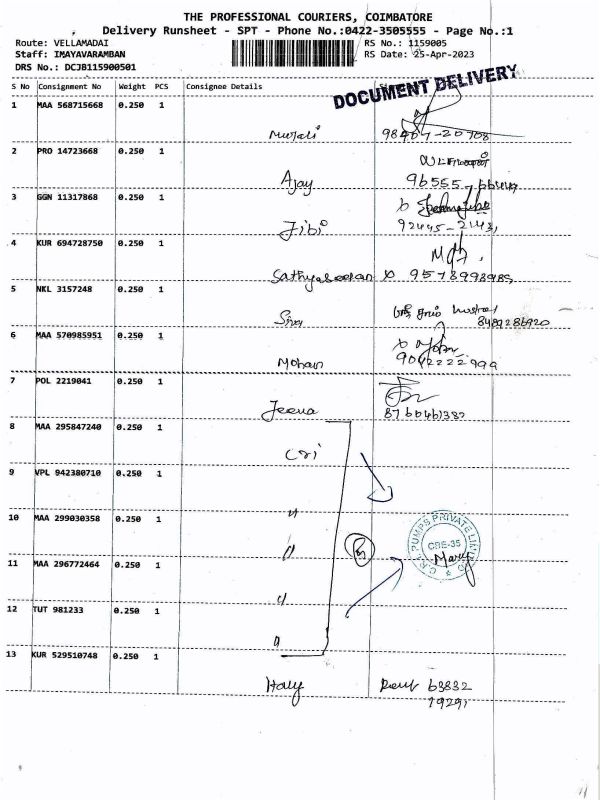 THE PROFESSIONAL COURIERS, COIMBATORE
Delivery Runsheet - SPT - Phone No.:0422-3505555 - Page No.:1
Route: VELLAMADAI RS No.: 1159005
Staff: IMAYAVARAMBAN RS Date: 25-Apr-2023
DRS No.: DCJB115900501
DOCUMENT DELIVERY
S No Consignment No Weight PCS Consignee Details
1 MAA 568715668 0.250 1
Murali
2 PRO 14723668 0.250 1
Ajay
3 GGN 11317868 0.250 1
Jibi
4 KUR 694728750 0.250 1
Sathyaseelan
5 NKL 3157248 0.250 1
Siva 8489286920
6 MAA 570985951 0.250 1
Mohan 9042222999
7 POL 2219041 0.250 1
Jeeva 8760461382
8 MAA 295847240 0.250 1
cri
9 VPL 942380710 0.250 1
"
10 MAA 299030358 0.250 1
"
C.R.I. PUMPS PRIVATE LIMITED
CBE-35
11 MAA 296772464 0.250 1
"
12 TUT 981233 0.250 1
"
13 KUR 529510748 0.250 1
63832
19291